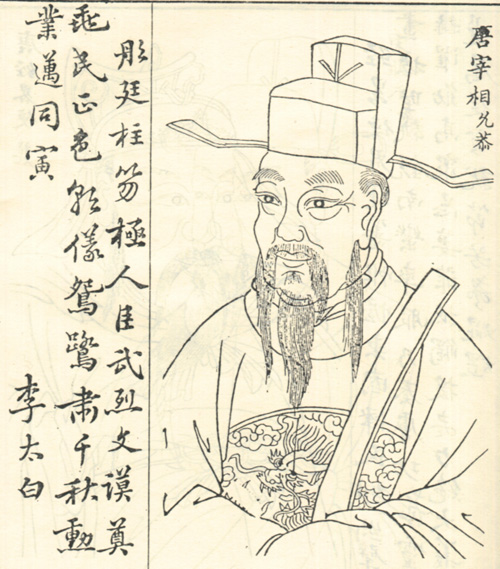 唐宰相允恭
彤廷柱笏極人臣武烈文謨奠
兆民正色朝儀鴛鷺肅千秋勳
業邁同寅
李太白